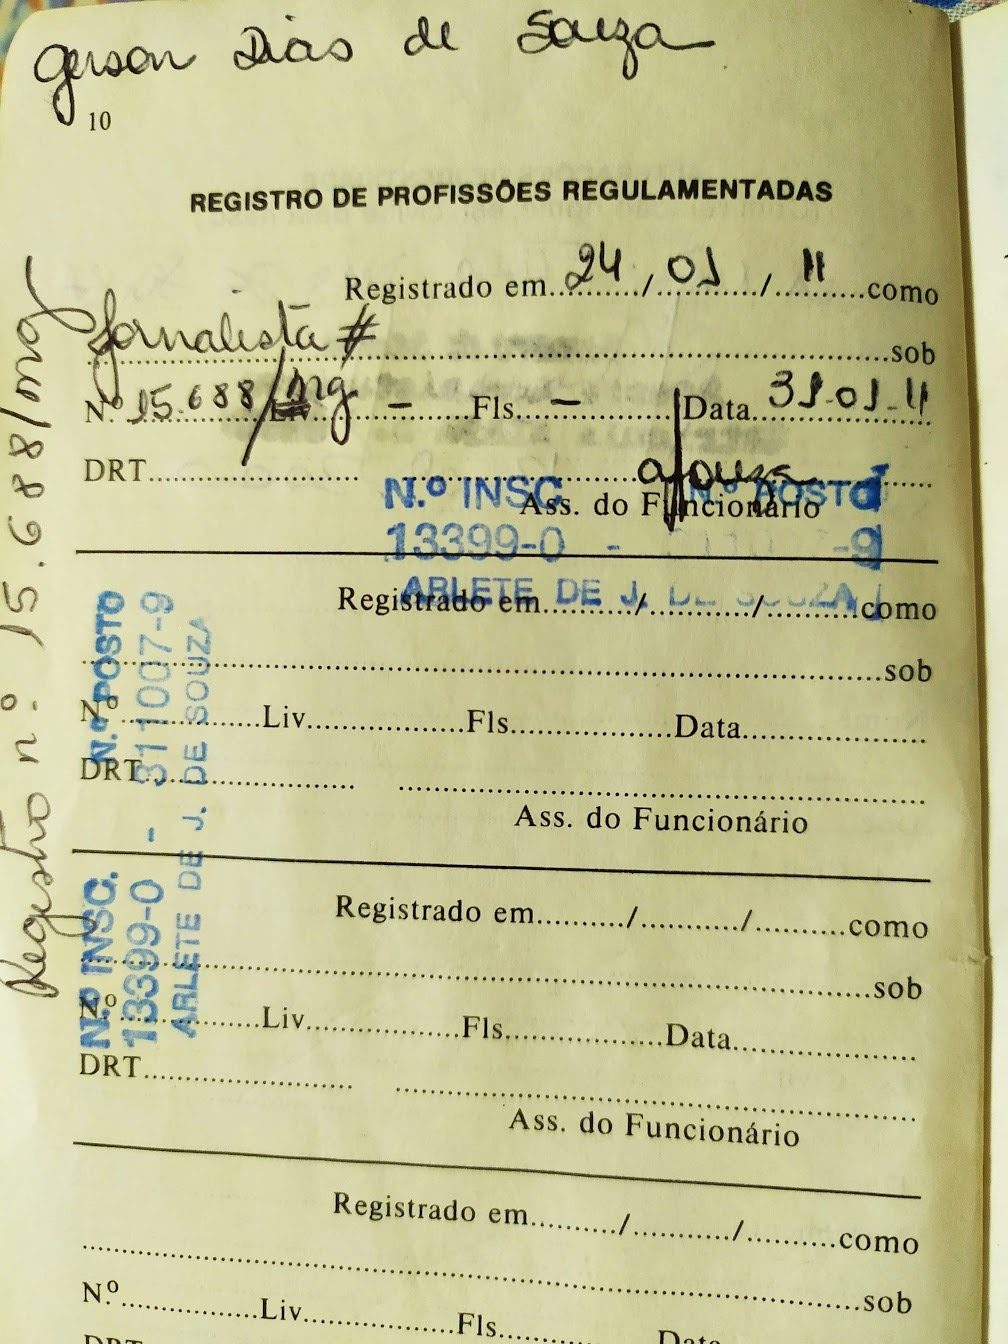 Gerson Dias de Souza
10
REGISTRO DE PROFISSÕES REGULAMENTADAS
Registrado em...24.../...01.../...11...como
Jornalista #..........sob
N.º 15.688/mg - Fls. - Data 31-01-11
DRT
Ass. do Funcionário
N.º INSC N.º POSTO
13399-0 - -9
ARLETE DE J. DE SOUZA
Registrado em........./........./.........como
sob
N.º Liv. Fls. Data
DRT
Ass. do Funcionário
Registrado em........./........./.........como
sob
N.º Liv. Fls. Data
DRT
Ass. do Funcionário
Registrado em........./........./.........como
sob
N.º Liv. Fls. Data
DRT
Registro nº: 15.688/mg
N.º INSC. N.º POSTO
13399-0 - 311007-9
ARLETE DE J. DE SOUZA